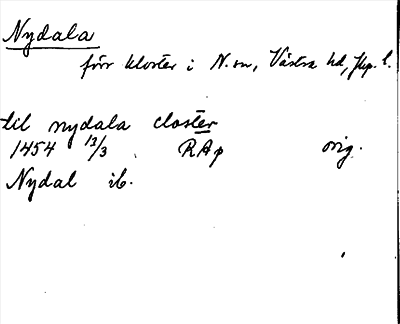 Nydala
förr kloster i N. sn, Västra hd, Jkp. l.
til nydala closter
1454 13/3 RAp orig.
Nydal ib.